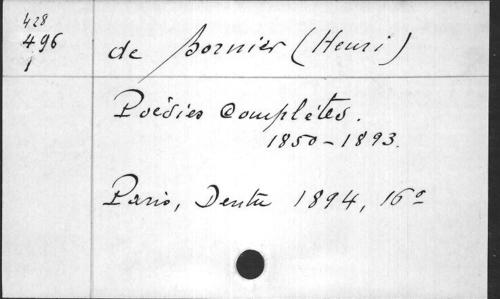 428
496
1
de Bornier (Henri)
Poésies Complètes.
1850-1893.
Paris, Dentu 1894, 16º